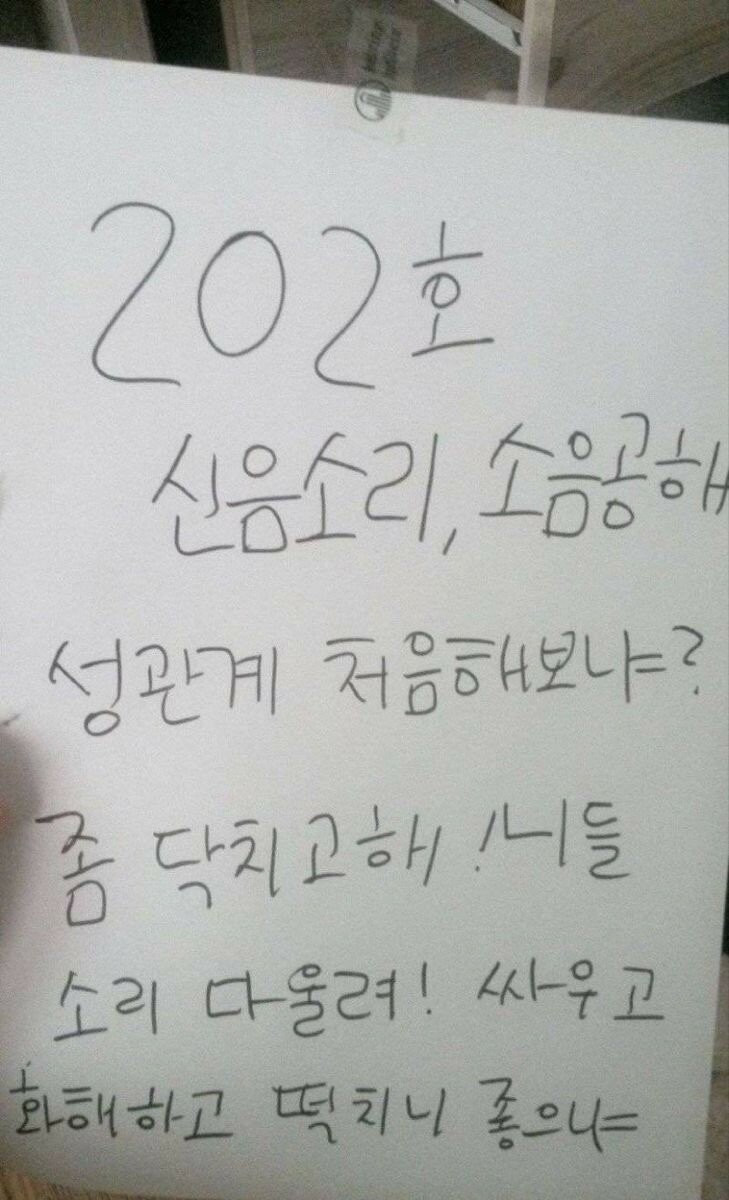 202호
신음소리, 소음공해
성관계 처음해보냐?
좀 닥치고해! 니들
소리 다울려! 싸우고
화해하고 떡치니 좋으냐